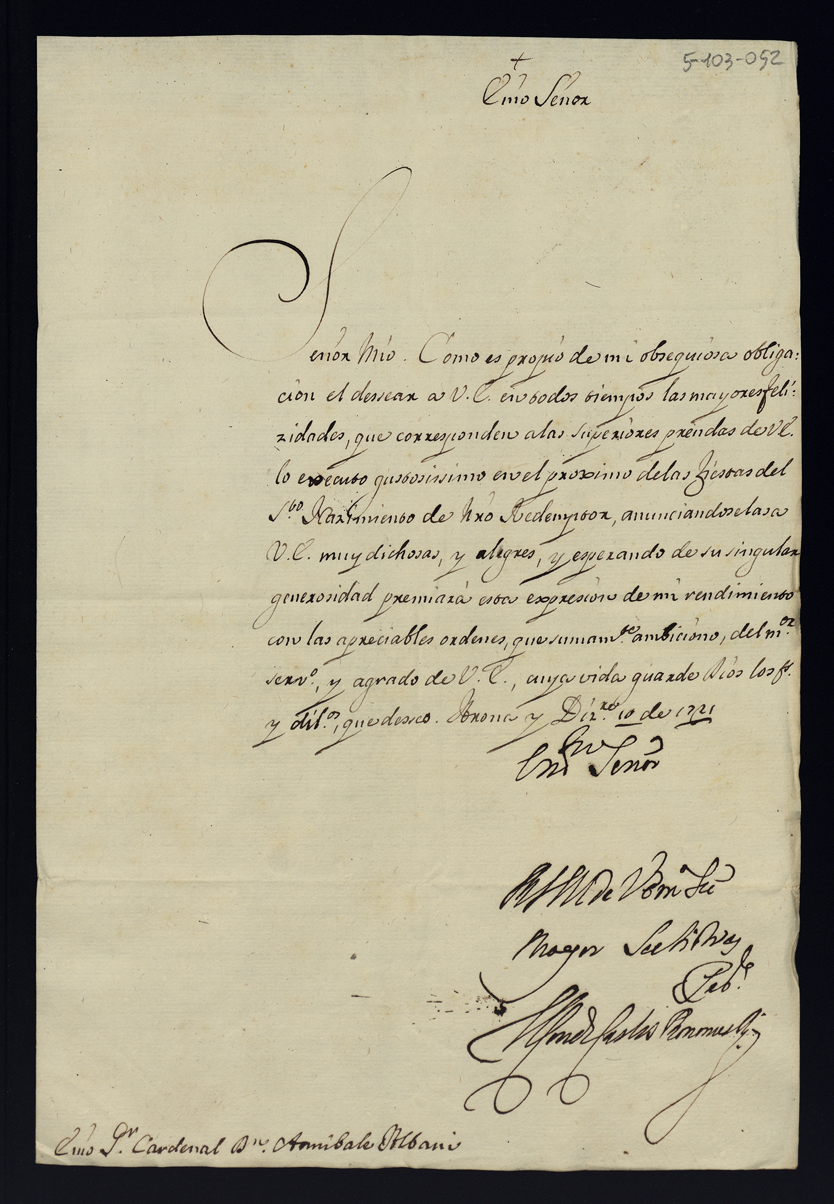 5-103-052
+
Emo Señor
Señor Mio. Como es propio de mi obsequiosa obliga:
cion el dessear a V.E. en todos tiempos las mayores feli:
zidades, que corresponden a las superiores prendas de VE.
lo executo gustosissimo en el proximo de las Fiestas del
Sto Nazimiento de Nro Redemptor, anunciandoselas a
V.E. muy dichosas, y alegres, y esperando de su singular
generosidad premiará esta expresion de mi rendimiento
con las apreciables ordenes, que sumamte ambiciono, del mor
servo, y agrado de V.E., cuya vida guarde Dios los fs.
y dils, que deseo. Arona y Dizre 10 de 1721
Emo Señor
de Vem su
mayor
Carlos
Emo Sr. Cardenal Dn. Annibale Albani